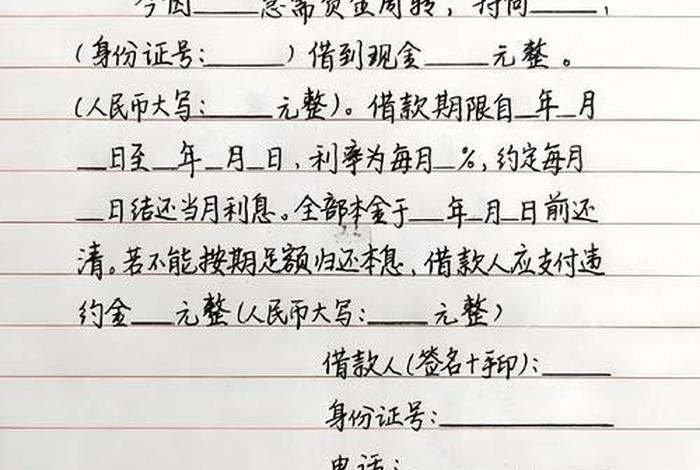 今因____急需资金周转，特向____，
(身份证号:____)借到现金____元整。
(人民币大写:____元整)。借款期限自_年_月
_日至_年_月_日,利率为每月_%,约定每月
_日结还当月利息。全部本金于_年_月_日前还
清。若不能按期足额归还本息,借款人应支付违
约金__元整(人民币大写:____元整)
借款人(签名+手印):____
身份证号:________
电话: